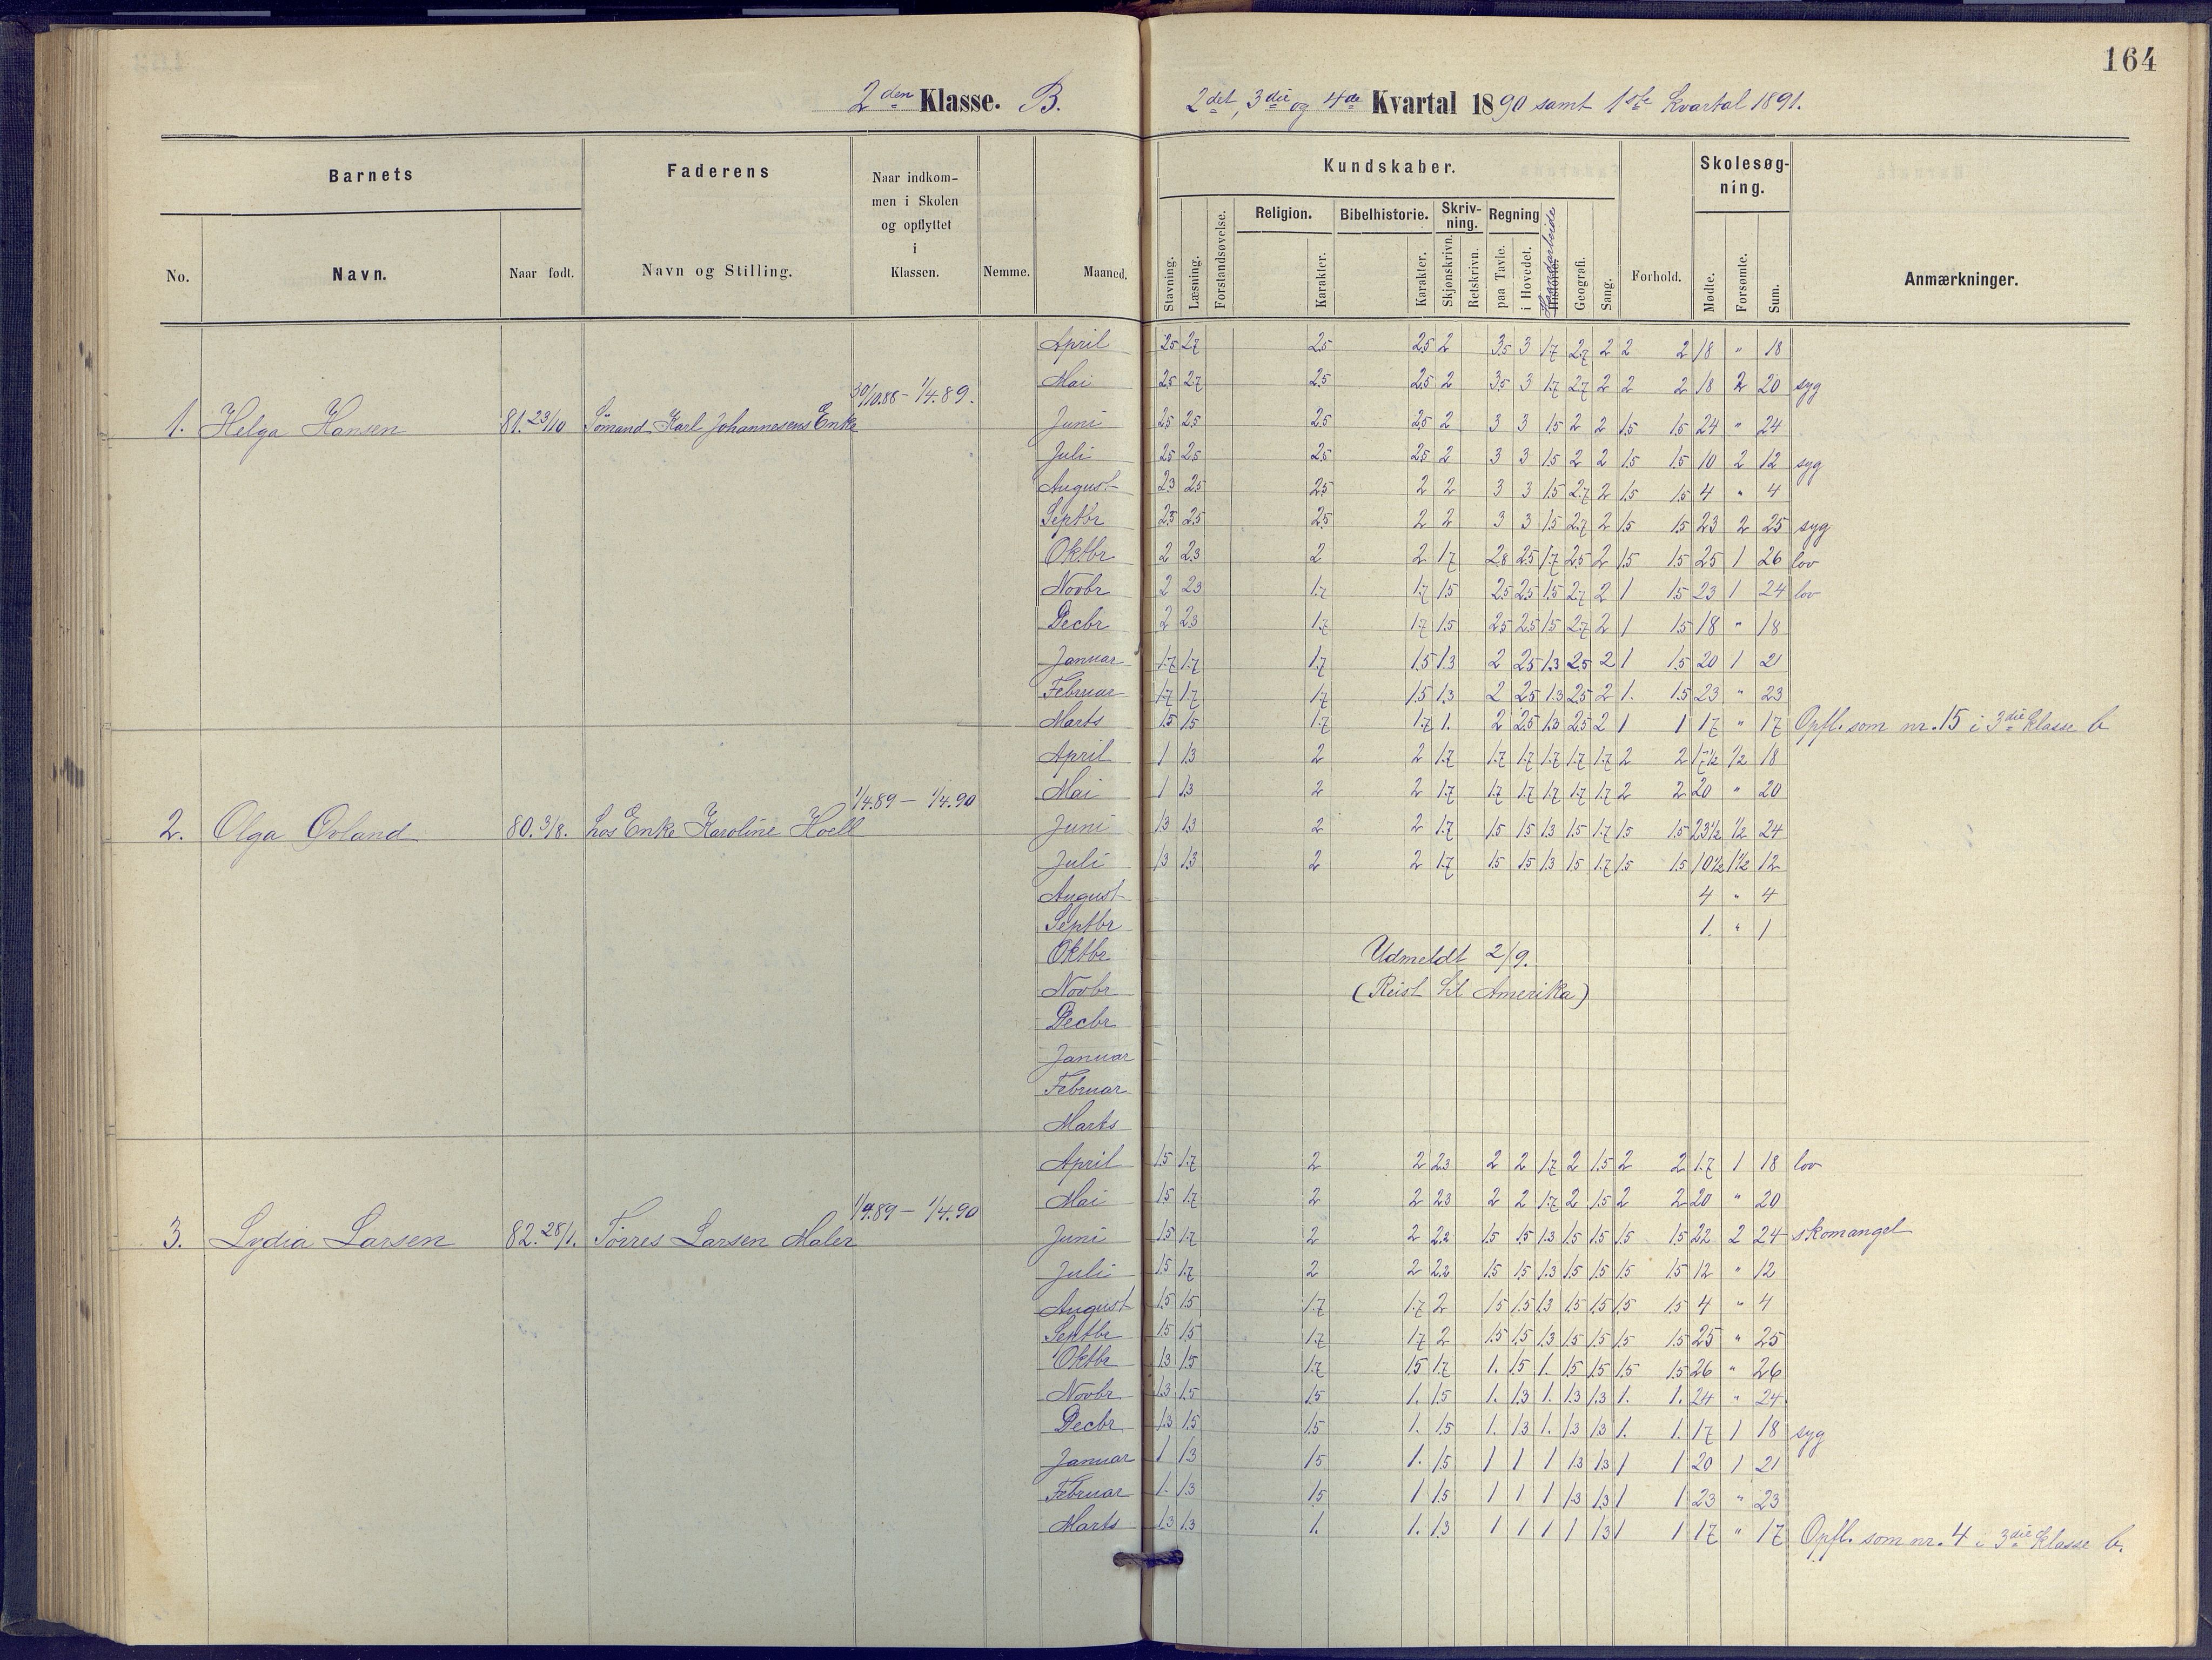 164
2den Klasse. B. 2det, 3die og 4de Kvartal 1890 samt 1ste Kvartal 1891.
Barnets Faderens Naar indkommen i Skolen og opflyttet i Klassen. Nemme. Maaned. Kundskaber. Forhold. Skolesøgning. Anmærkninger.
No. Navn. Naar født. Navn og Stilling.
Stavning. Læsning. Forstandsøvelse. Religion. Karakter. Bibelhistorie. Karakter. Skrivning. Skjønskrivn. Retskrivn. Regning paa Tavle. i Hovedet. Historie. Haandarbeide Geografi. Sang. Mødte. Forsømte. Sum.
1. Helga Hansen 81.23/10 Sømand Karl Johannesens Enke 30/10.88 - 1/4.89.
April 2.5 2.7 2.5 2.5 2 3.5 3 1.7 2.7 2 2 2 18 " 18
Mai 2.5 2.7 2.5 2.5 2 3.5 3 1.7 2.7 2 2 2 18 2 20 syg
Juni 2.5 2.5 2.5 2.5 2 3 3 1.5 2 2 1.5 1.5 24 " 24
Juli 2.5 2.5 2.5 2.5 2 3 3 1.5 2 2 1.5 1.5 10 2 12 syg
August 2.3 2.5 2.5 2 2 3 3 1.5 2.7 2 1.5 1.5 4 " 4
Septbr 2.3 2.5 2.5 2 2 3 3 1.5 2.7 2 1.5 1.5 23 2 25 syg
Oktbr 2 2.3 2 2 1.7 2.8 2.5 1.7 2.5 2 1.5 1.5 25 1 26 lov
Novbr 2 2.3 1.7 1.7 1.5 2.5 2.5 1.5 2.7 2 1 1.5 23 1 24 lov
Decbr 2 2.3 1.7 1.7 1.5 2.5 2.5 1.5 2.7 2 1 1.5 18 " 18
Januar 1.7 1.7 1.7 1.5 1.3 2 2.5 1.3 2.5 2 1 1.5 20 1 21
Februar 1.7 1.7 1.7 1.5 1.3 2 2.5 1.3 2.5 2 1. 1.5 23 " 23
Marts 1.5 1.5 1.7 1.7 1. 2 2.5 1.3 2.5 2 1 1 17 " 17 Opfl. som nr. 15 i 3die Klasse b
2. Olga Ovland 80.3/8. Los Enke Karoline Hoell 1/4.89 - 1/4.90
April 1 1.3 2 2 1.7 1.7 1.7 1.7 1.7 1.7 2 2 17½ ½ 18
Mai 1 1.3 2 2 1.7 1.7 1.7 1.7 1.7 1.7 2 2 20 " 20
Juni 1.3 1.3 2 2 1.7 1.5 1.5 1.3 1.5 1.7 1.5 1.5 23½ ½ 24
Juli 1.3 1.3 2 2 1.7 1.5 1.5 1.3 1.5 1.7 1.5 1.5 10½ 1½ 12
August 4 " 4
Septbr 1. " 1
Oktbr Udmeldt 2/9.
Novbr (Reist til Amerika)
Decbr
Januar
Februar
Marts
3. Lydia Larsen 82.28/1. Tørres Larsen Maler 1/9.89 - 1/4.90
April 1.5 1.7 2 2 2.3 2 2 1.7 2 1.5 2 2 17 1 18 lov
Mai 1.5 1.7 2 2 2.3 2 2 1.7 2 1.5 2 2 20 " 20
Juni 1.5 1.7 2 2 2.2 1.5 1.5 1.3 1.5 1.5 1.5 1.5 22 2 24 skomangel
Juli 1.5 1.7 2 2 2.2 1.5 1.5 1.3 1.5 1.5 1.5 1.5 12 " 12
August 1.5 1.5 1.7 1.7 2 1.5 1.5 1.3 1.5 1.5 1.5 1.5 4 " 4
Septbr 1.5 1.5 1.7 1.7 2 1.5 1.5 1.3 1.5 1.5 1.5 1.5 25 " 25
Oktbr 1.3 1.5 1.7 1.5 1.7 1. 1.5 1. 1.5 1.5 1.5 1.5 26 " 26
Novbr 1.3 1.5 1.5 1. 1.5 1. 1.3 1. 1.3 1.3 1. 1. 24 " 24
Decbr 1.3 1.5 1.5 1. 1.5 1. 1.3 1. 1.3 1.3 1. 1. 17 1 18 syg
Januar 1 1.3 1.5 1. 1.5 1 1 1 1.3 1.3 1 1 20 1 21
Februar 1. 1.3 1.5 1 1.5 1 1 1 1.3 1.3 1 1 23 " 23
Marts 1.3 1.3 1. 1. 1.3 1 1 1 1 1.3 1 1 17 " 17 Opfl. som nr. 4 i 3die Klasse b.